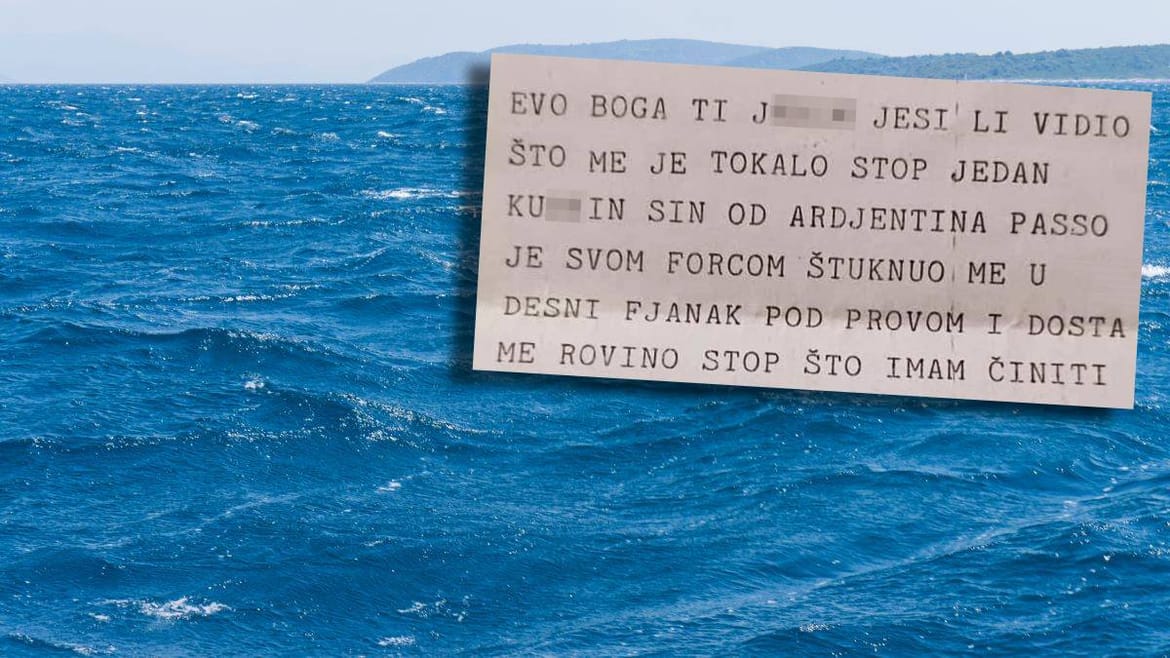 EVO BOGA TI J JESI LI VIDIO
ŠTO ME JE TOKALO STOP JEDAN
KU IN SIN OD ARDJENTINA PASSO
JE SVOM FORCOM ŠTUKNUO ME U
DESNI FJANAK POD PROVOM I DOSTA
ME ROVINO STOP ŠTO IMAM ČINITI